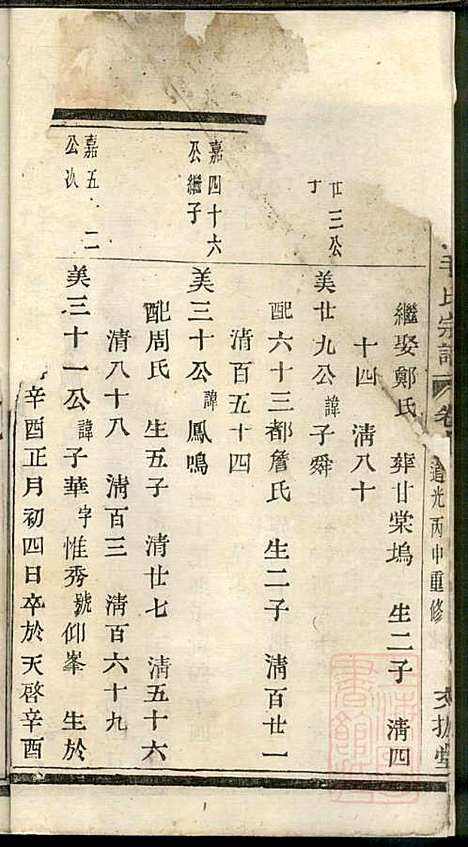 氏宗譜
卷
道光丙申重修
堂
繼娶鄭氏 葬甘棠塢 生二子 清四
十四 清八十
廿三公
美廿九公諱子舜
配六十三都詹氏 生二子 清百廿一
清百五十四
嘉四十六
公繼子
美三十公諱鳳鳴
配周氏 生五子 清廿七 清五十六
清八十八 清百三 清百六十九
嘉五 二
公次
美三十一公諱子華字惟秀號仰峯 生於
辛酉正月初四日卒於天啓辛酉